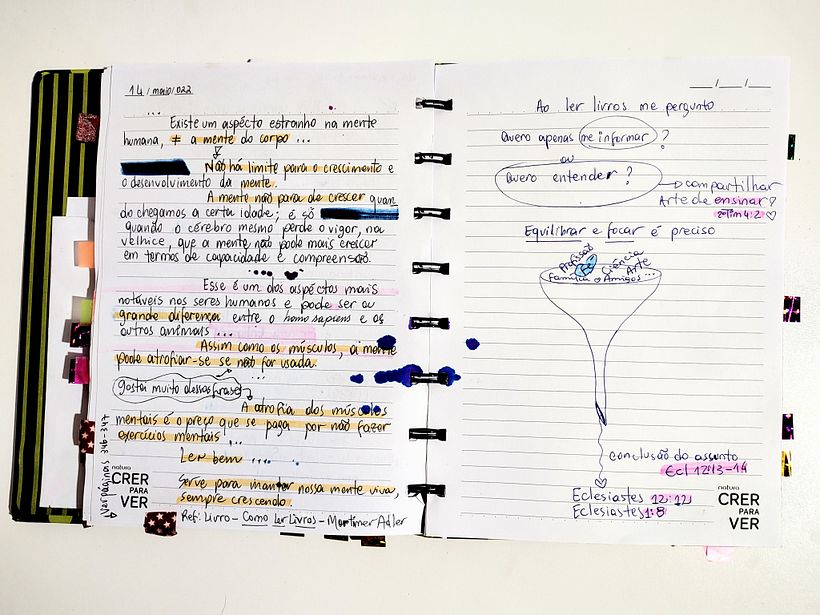 14 / maio / 022
...
Existe um aspécto estranho na mente
humana, ≠ a mente do corpo ...
Não há limite para o crescimento e
o desenvolvimento da mente.
A mente não para de crescer quan
do chegamos a certa idade; é só
quando o cérebro mesmo perde o vigor, na
velhice, que a mente não pode mais crescer
em termos de capacidade e compreensão.
Esse é um dos aspéctos mais
notáveis nos seres humanos e pode ser au
grande diferença entre o homo sapiens e os
outros animais ...
Assim como os músculos, a mente
pode atrofiar-se se não for usada.
...
gostei muito dessas frases
A atrofia dos músculos
mentais é o preço que se paga por não fazer
exercícios mentais ...
Ler bem ....
Serve para manter nossa mente viva,
sempre crescendo.
Ref: Livro - Como Ler Livros - Mortimer Adler
Ver páginas 346-347
natura
CRER
PARA
VER
__/__/__
Ao ler livros me pergunto
Quero apenas me informar ?
ou
Quero entender ?
compartilhar
Arte de ensinar
2Tim 4:2 ♡
Equilibrar e focar é preciso
Profissão
Fé
Ciência
Arte...
Família
Amigos
conclusão do assunto
Ecl 12:13-14
Eclesiastes 12:12
Eclesiastes 1:8
natura
CRER
PARA
VER